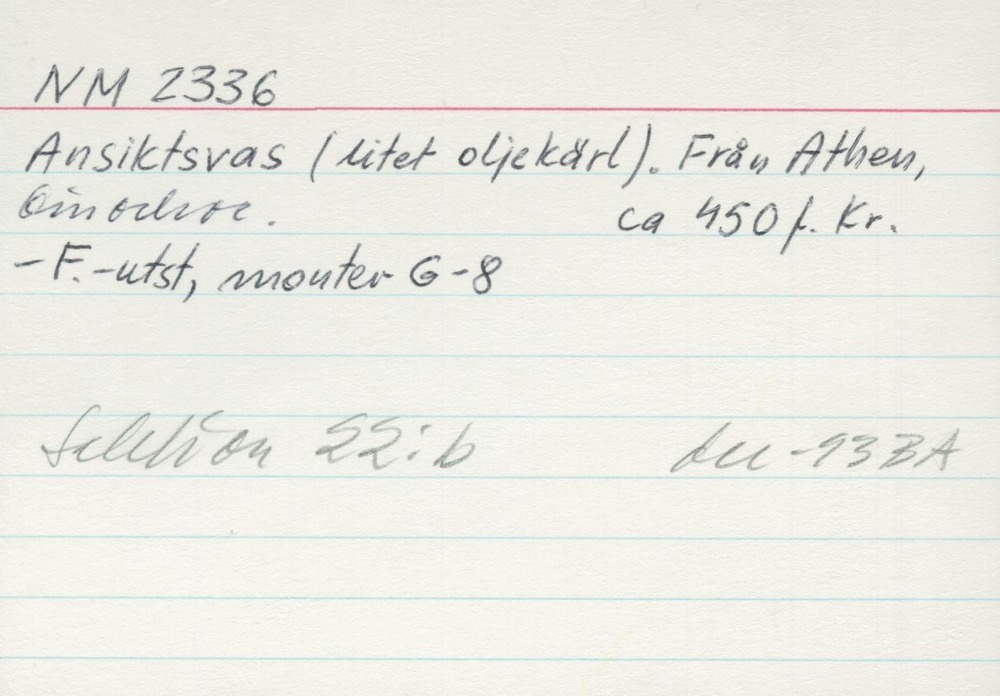 NM 2336
Ansiktsvas (litet oljekärl). Från Athen,
Oinochoe. ca 450 f. Kr.
- F.-utst, monter G-8
Sektion 22:b dec -93 BA